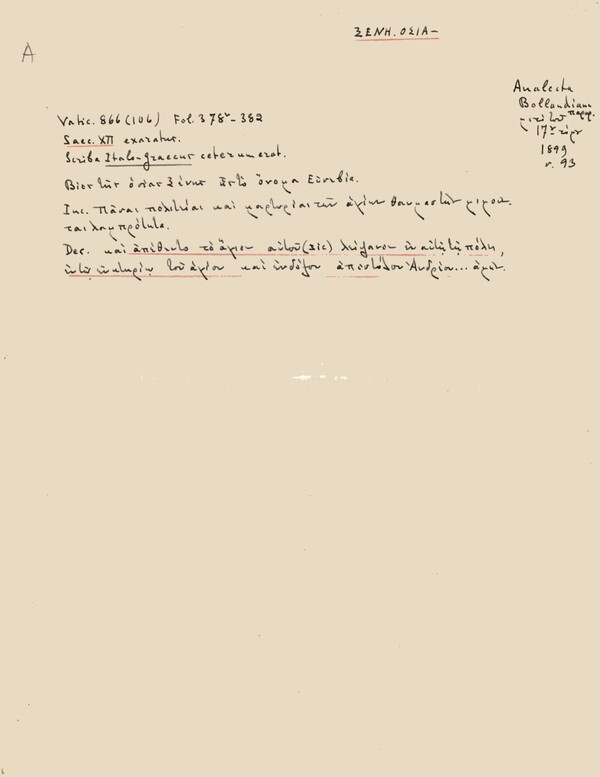 ΞΕΝΗ. ΟΣΙΑ-
A
Analecta
Bollandiana
παραρ.
μετὰ τοῦ
17ου τόμου
1899
σ. 93
Vatic. 866 (106) Fol. 378v - 382
Saec. XII exaratus.
Scriba Italo-graecus ceterum erat.
Βίος τῆς ὁσίας Ξένης ἧς τὸ ὄνομα Εὐσεβία.
Inc. Πᾶσαι πολιτεῖαι καὶ μαρτυρίαι τῶν ἁγίων θαυμασταὶ
ται λαμπρόταται.
Des. καὶ ἀπέθεντο τὸ ἅγιον αὐτοῦ (sic) λείψανον ἐν αὐτῇ τῇ πόλει,
ἐν τῷ εὐκτηρίῳ τοῦ ἁγίου καὶ ἐνδόξου ἀποστόλου Ἀνδρέου... ἀμήν.